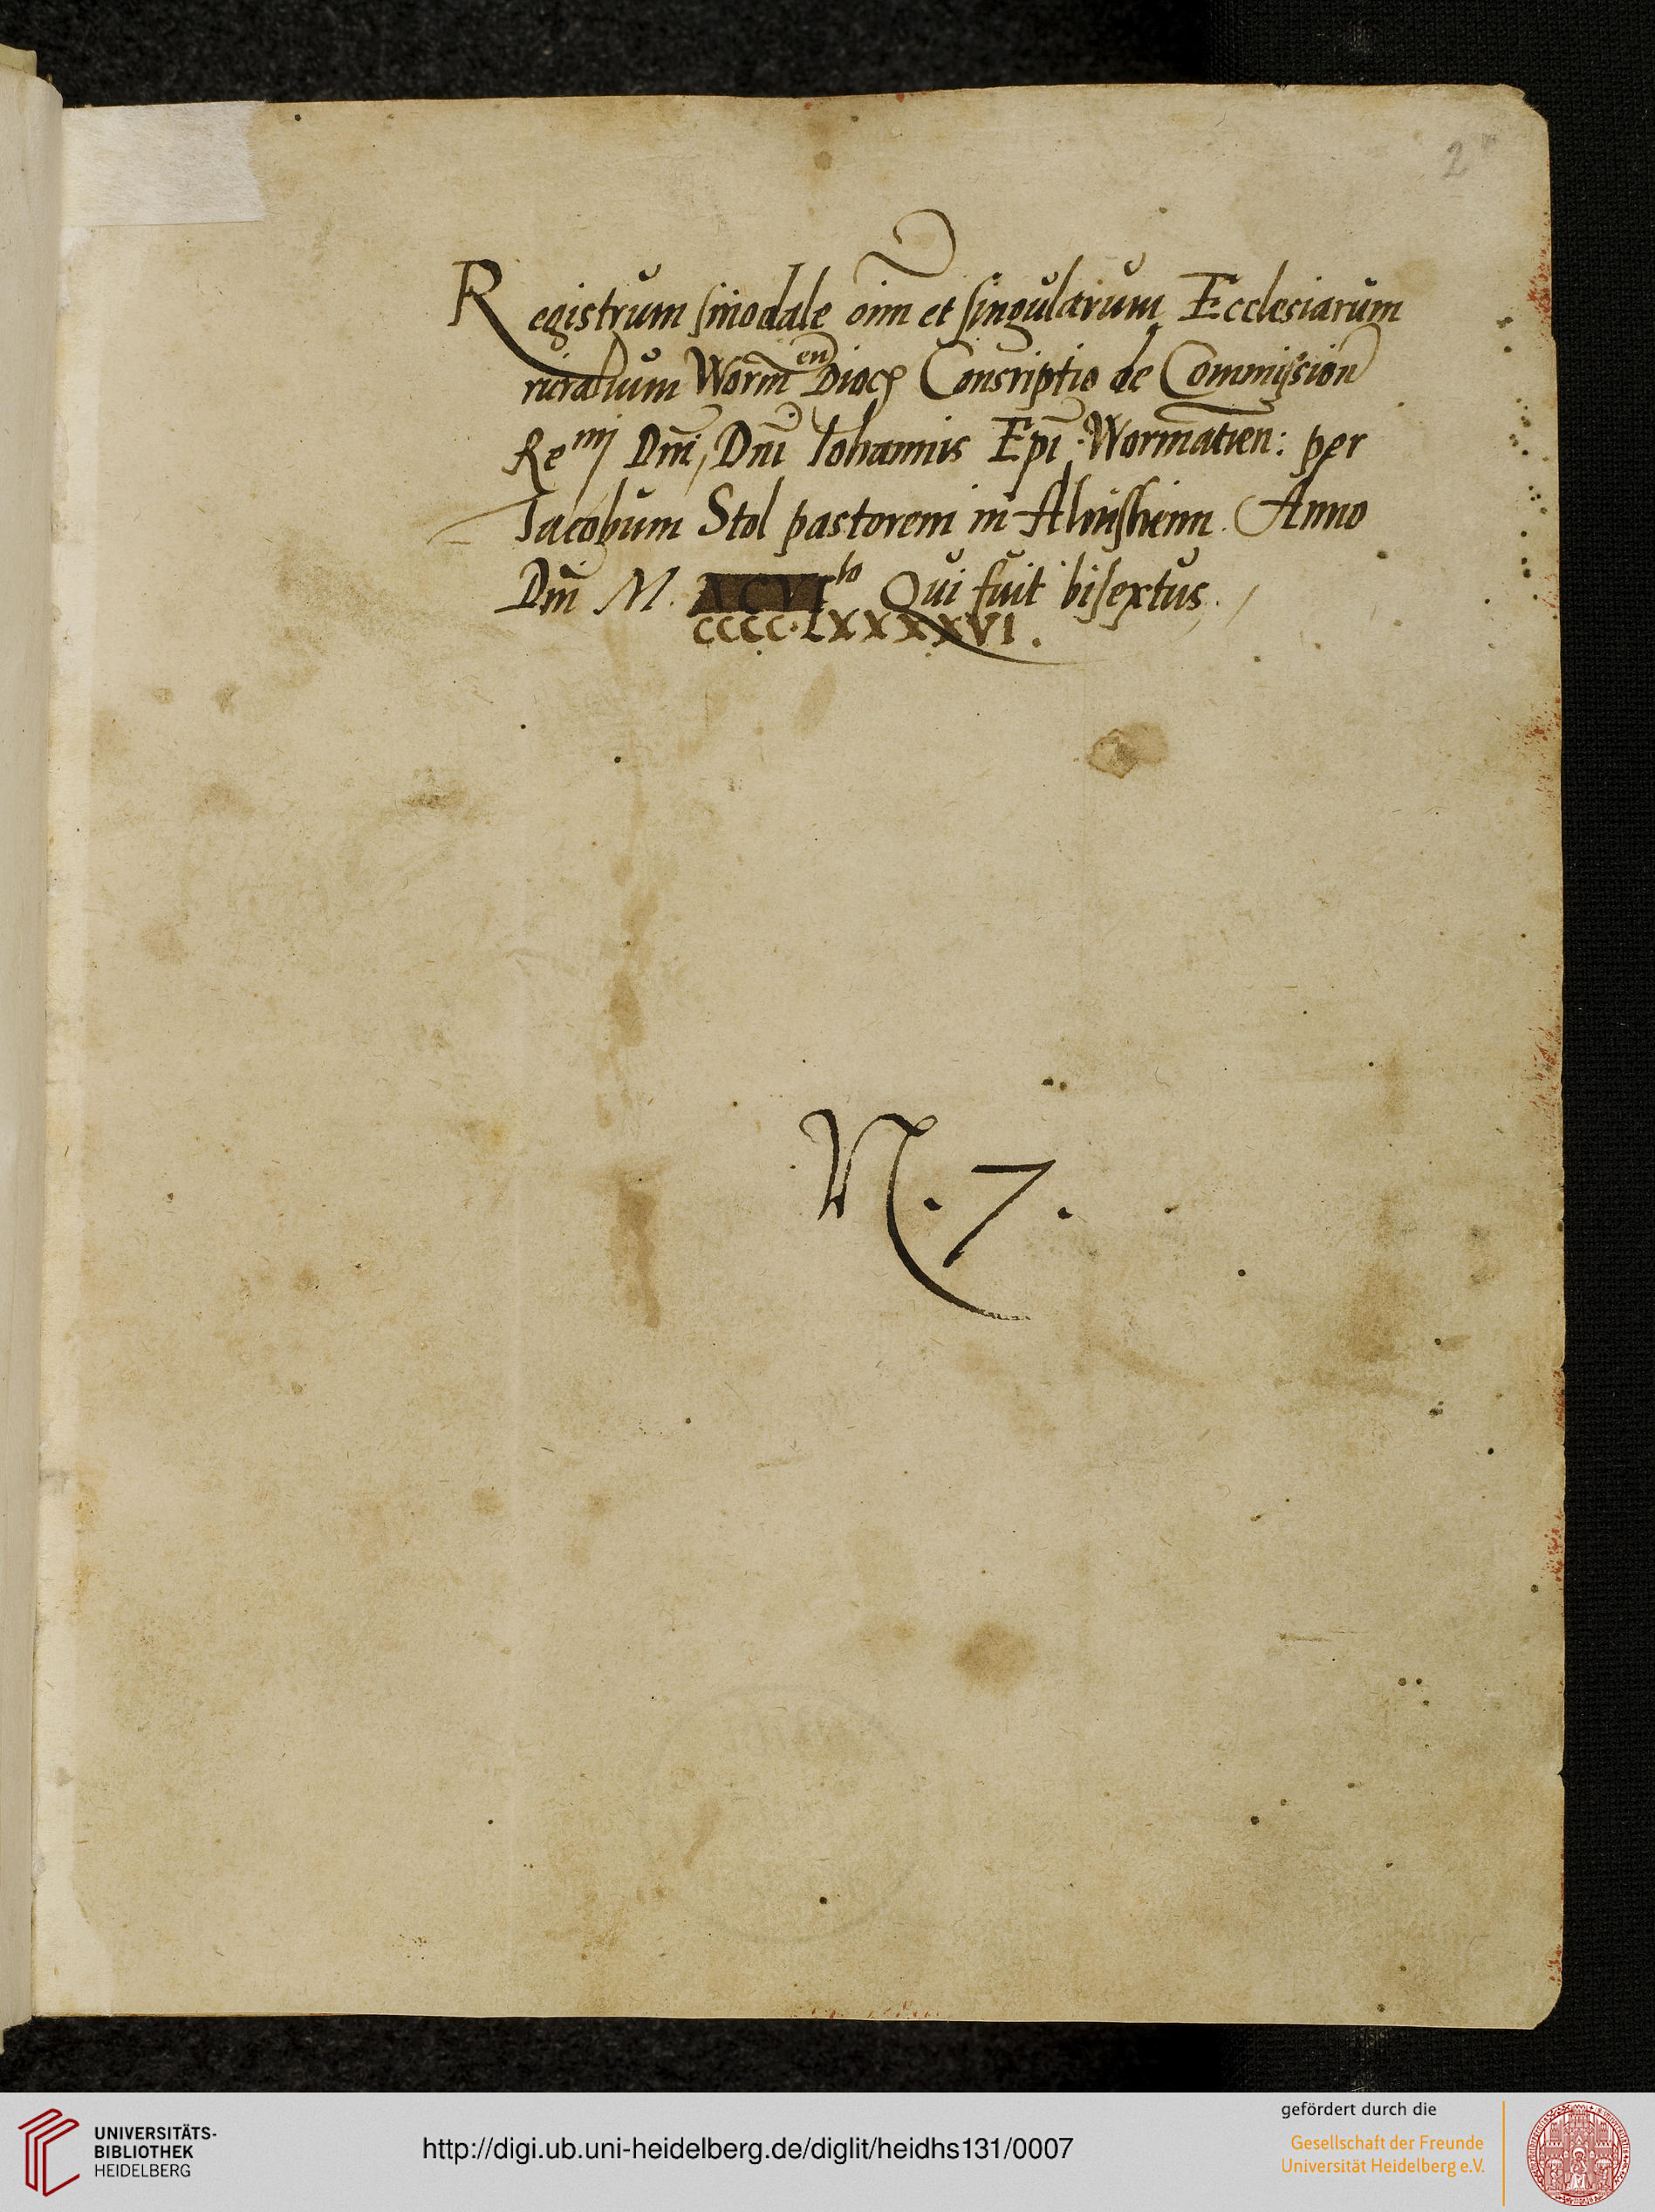 2
Registrum sinodale oim et singularum Ecclesiarum
ruralium Worm en Dioc Conscriptio de Commission
Re mi Dni, Dni Iohannis Epi Wormatien: per
Iacobum Stol pastorem in Anno
Dni M. XCVI to Qui fuit bisextus.
CCCC.LXXXXVI.
N. 7.
UNIVERSITÄTS-
BIBLIOTHEK
HEIDELBERG
http://digi.ub.uni-heidelberg.de/diglit/heidhs131/0007
gefördert durch die
Gesellschaft der Freunde
Universität Heidelberg e.V.